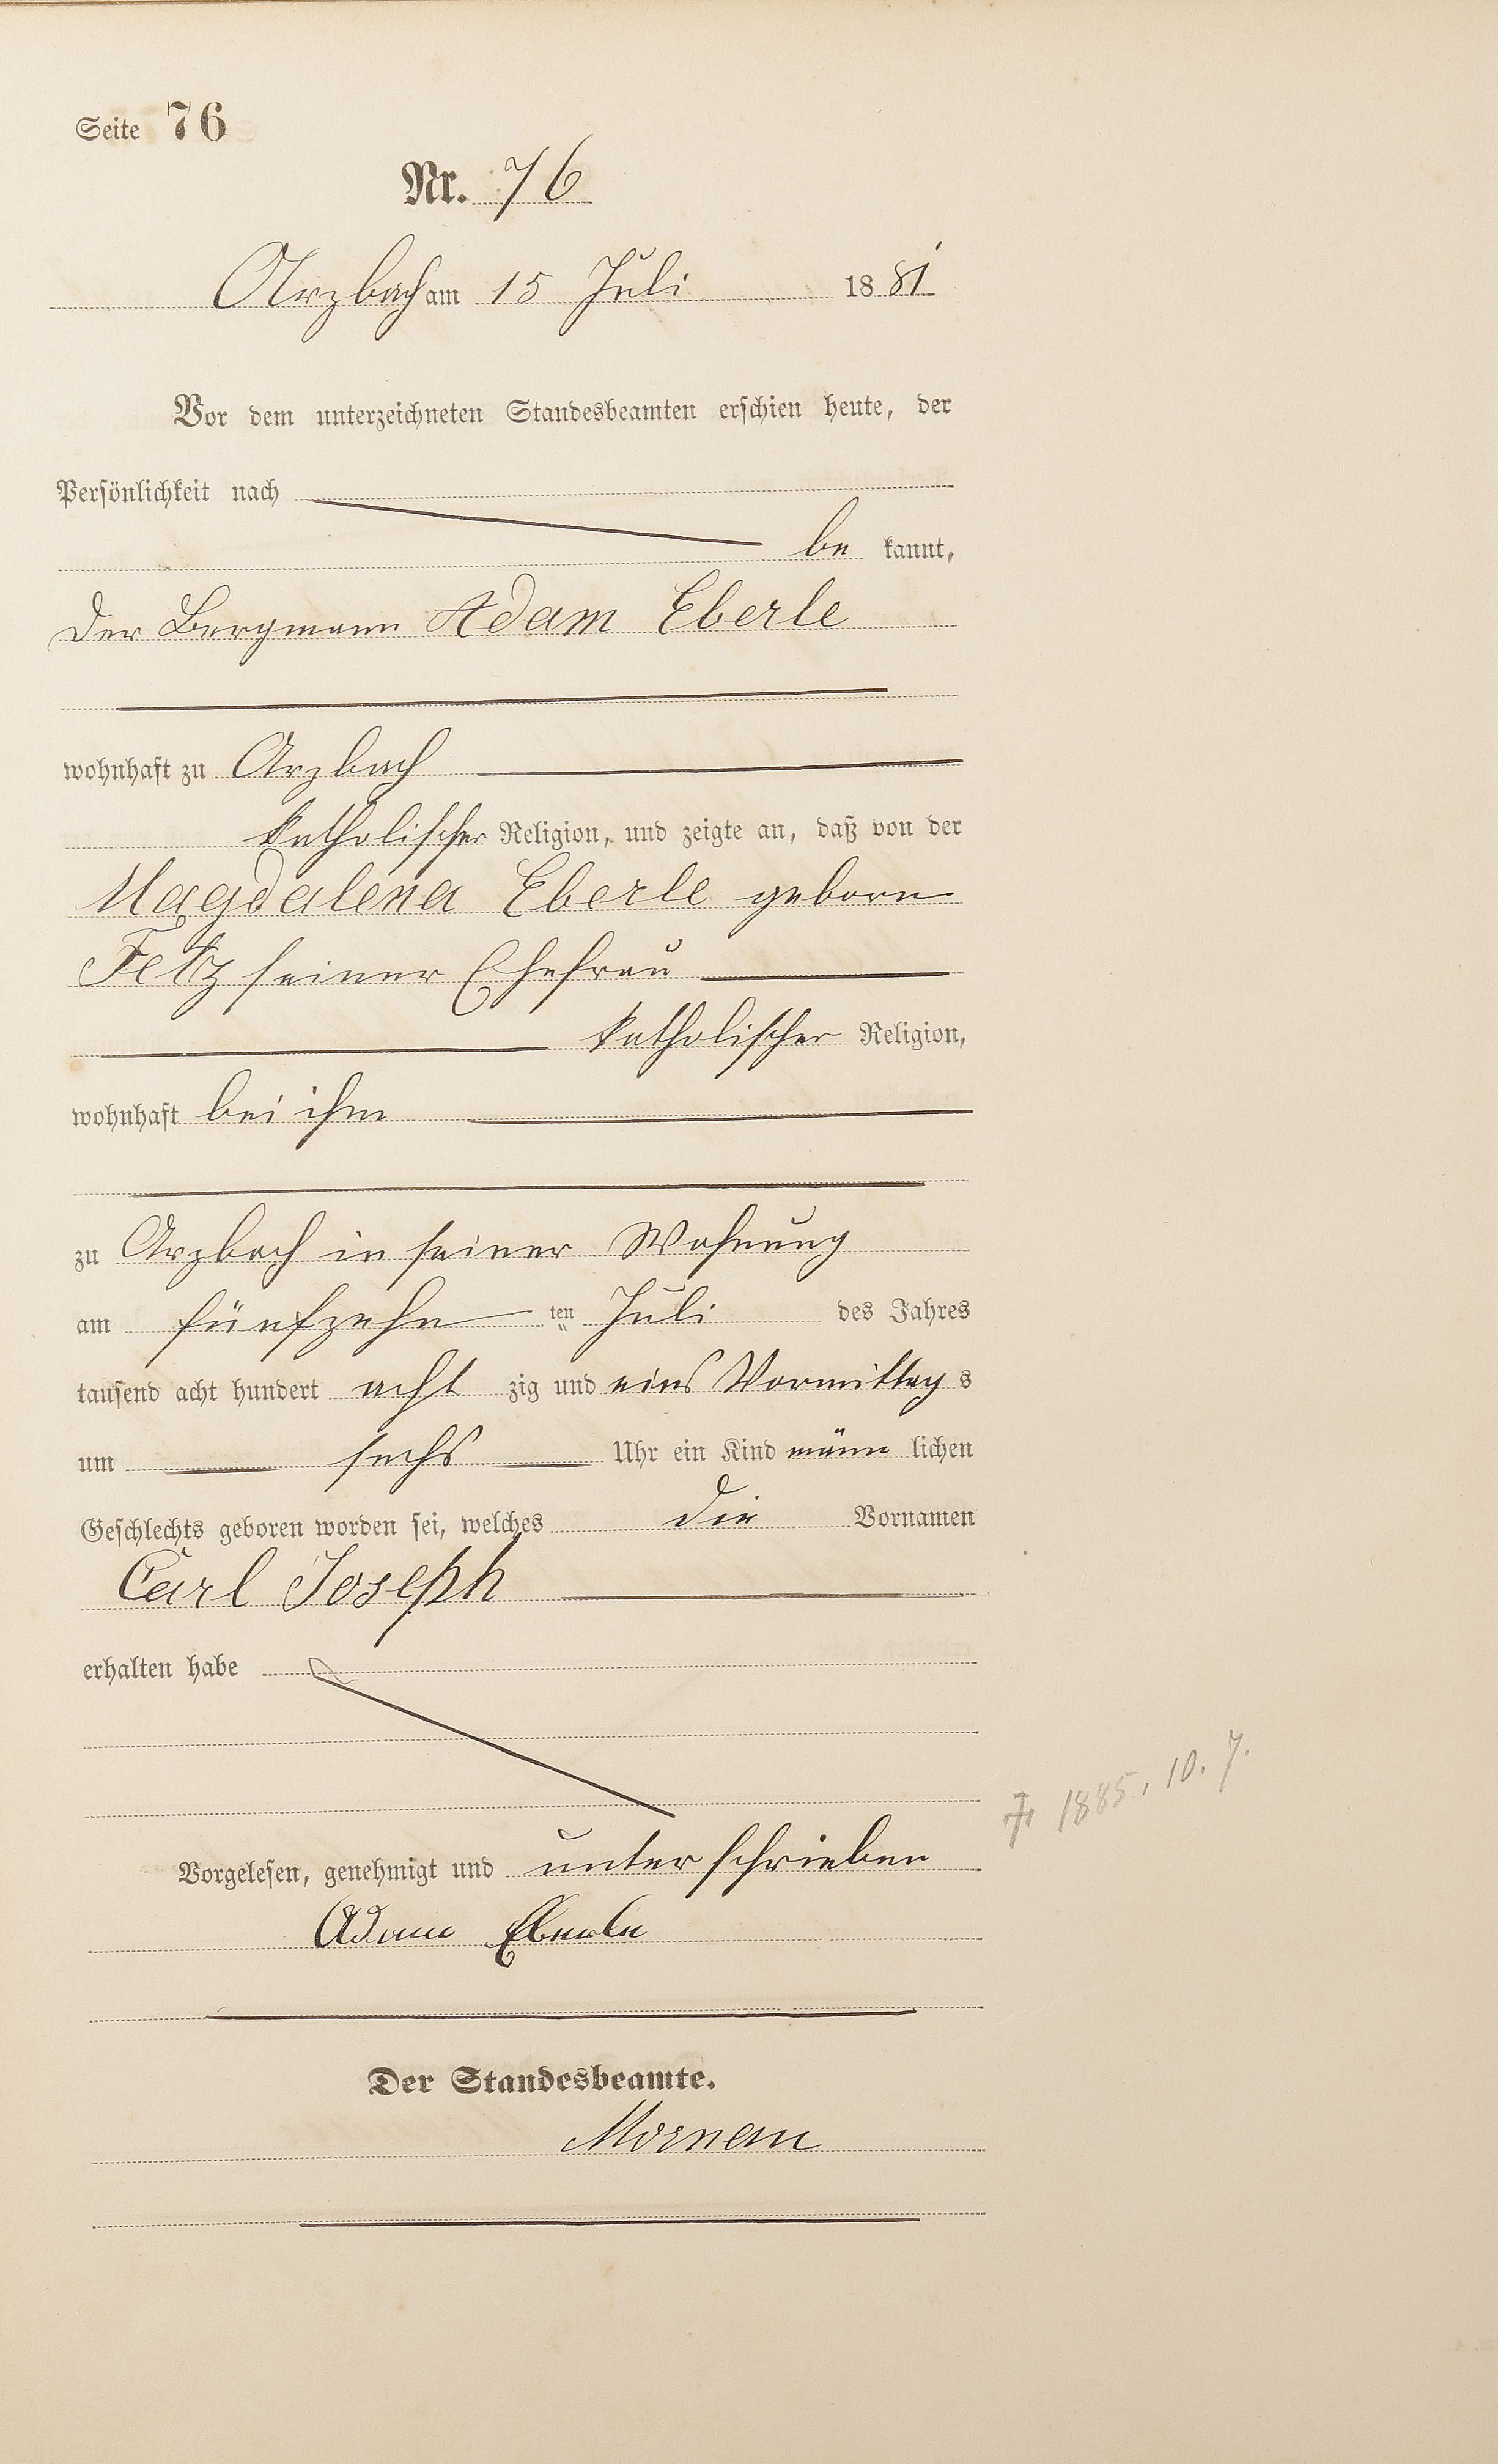 Seite 76
Nr. 76
Arzbach am 15 Juli 1881
Vor dem unterzeichneten Standesbeamten erschien heute, der
Persönlichkeit nach
be kannt,
der Bergmann Adam Eberle
wohnhaft zu Arzbach
katholischer Religion, und zeigte an, daß von der
Magdalena Eberle geborn
Fetz seiner Ehefrau
katholischer Religion,
wohnhaft bei ihm
zu Arzbach in seiner Wohnung
am fünfzehn ten Juli des Jahres
tausend acht hundert acht zig und eins Vormittag s
um sechs Uhr ein Kind männ lichen
Geschlechts geboren worden sei, welches die Vornamen
Carl Joseph
erhalten habe
† 1885, 10. 7.
Vorgelesen, genehmigt und unterschrieben
Adam Eberle
Der Standesbeamte.